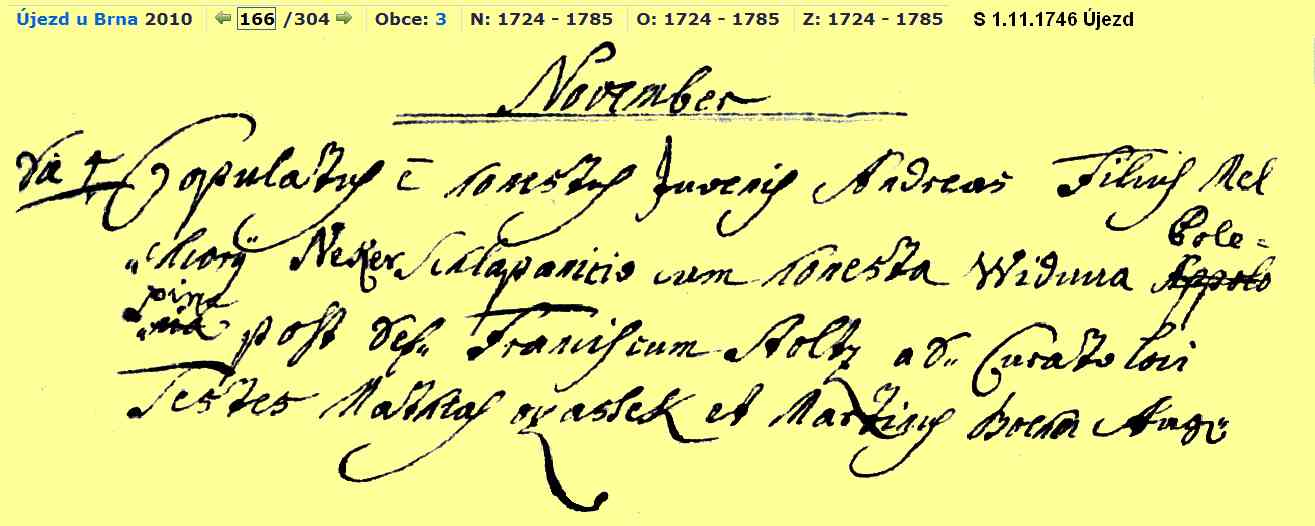 Újezd u Brna 2010 166 /304 Obce: 3 N: 1724 - 1785 O: 1724 - 1785 Z: 1724 - 1785 S 1.11.1746 Újezd
November
Copulatus ē honestus Juvenis Andreas Filius Mel
chiorÿ Neker Schlapanicio cum honesta Widuua Appolo
Pole=
pina
nia post def. Franciscum Stoltz a d. Curato loci
Testes Mathias et Martinus